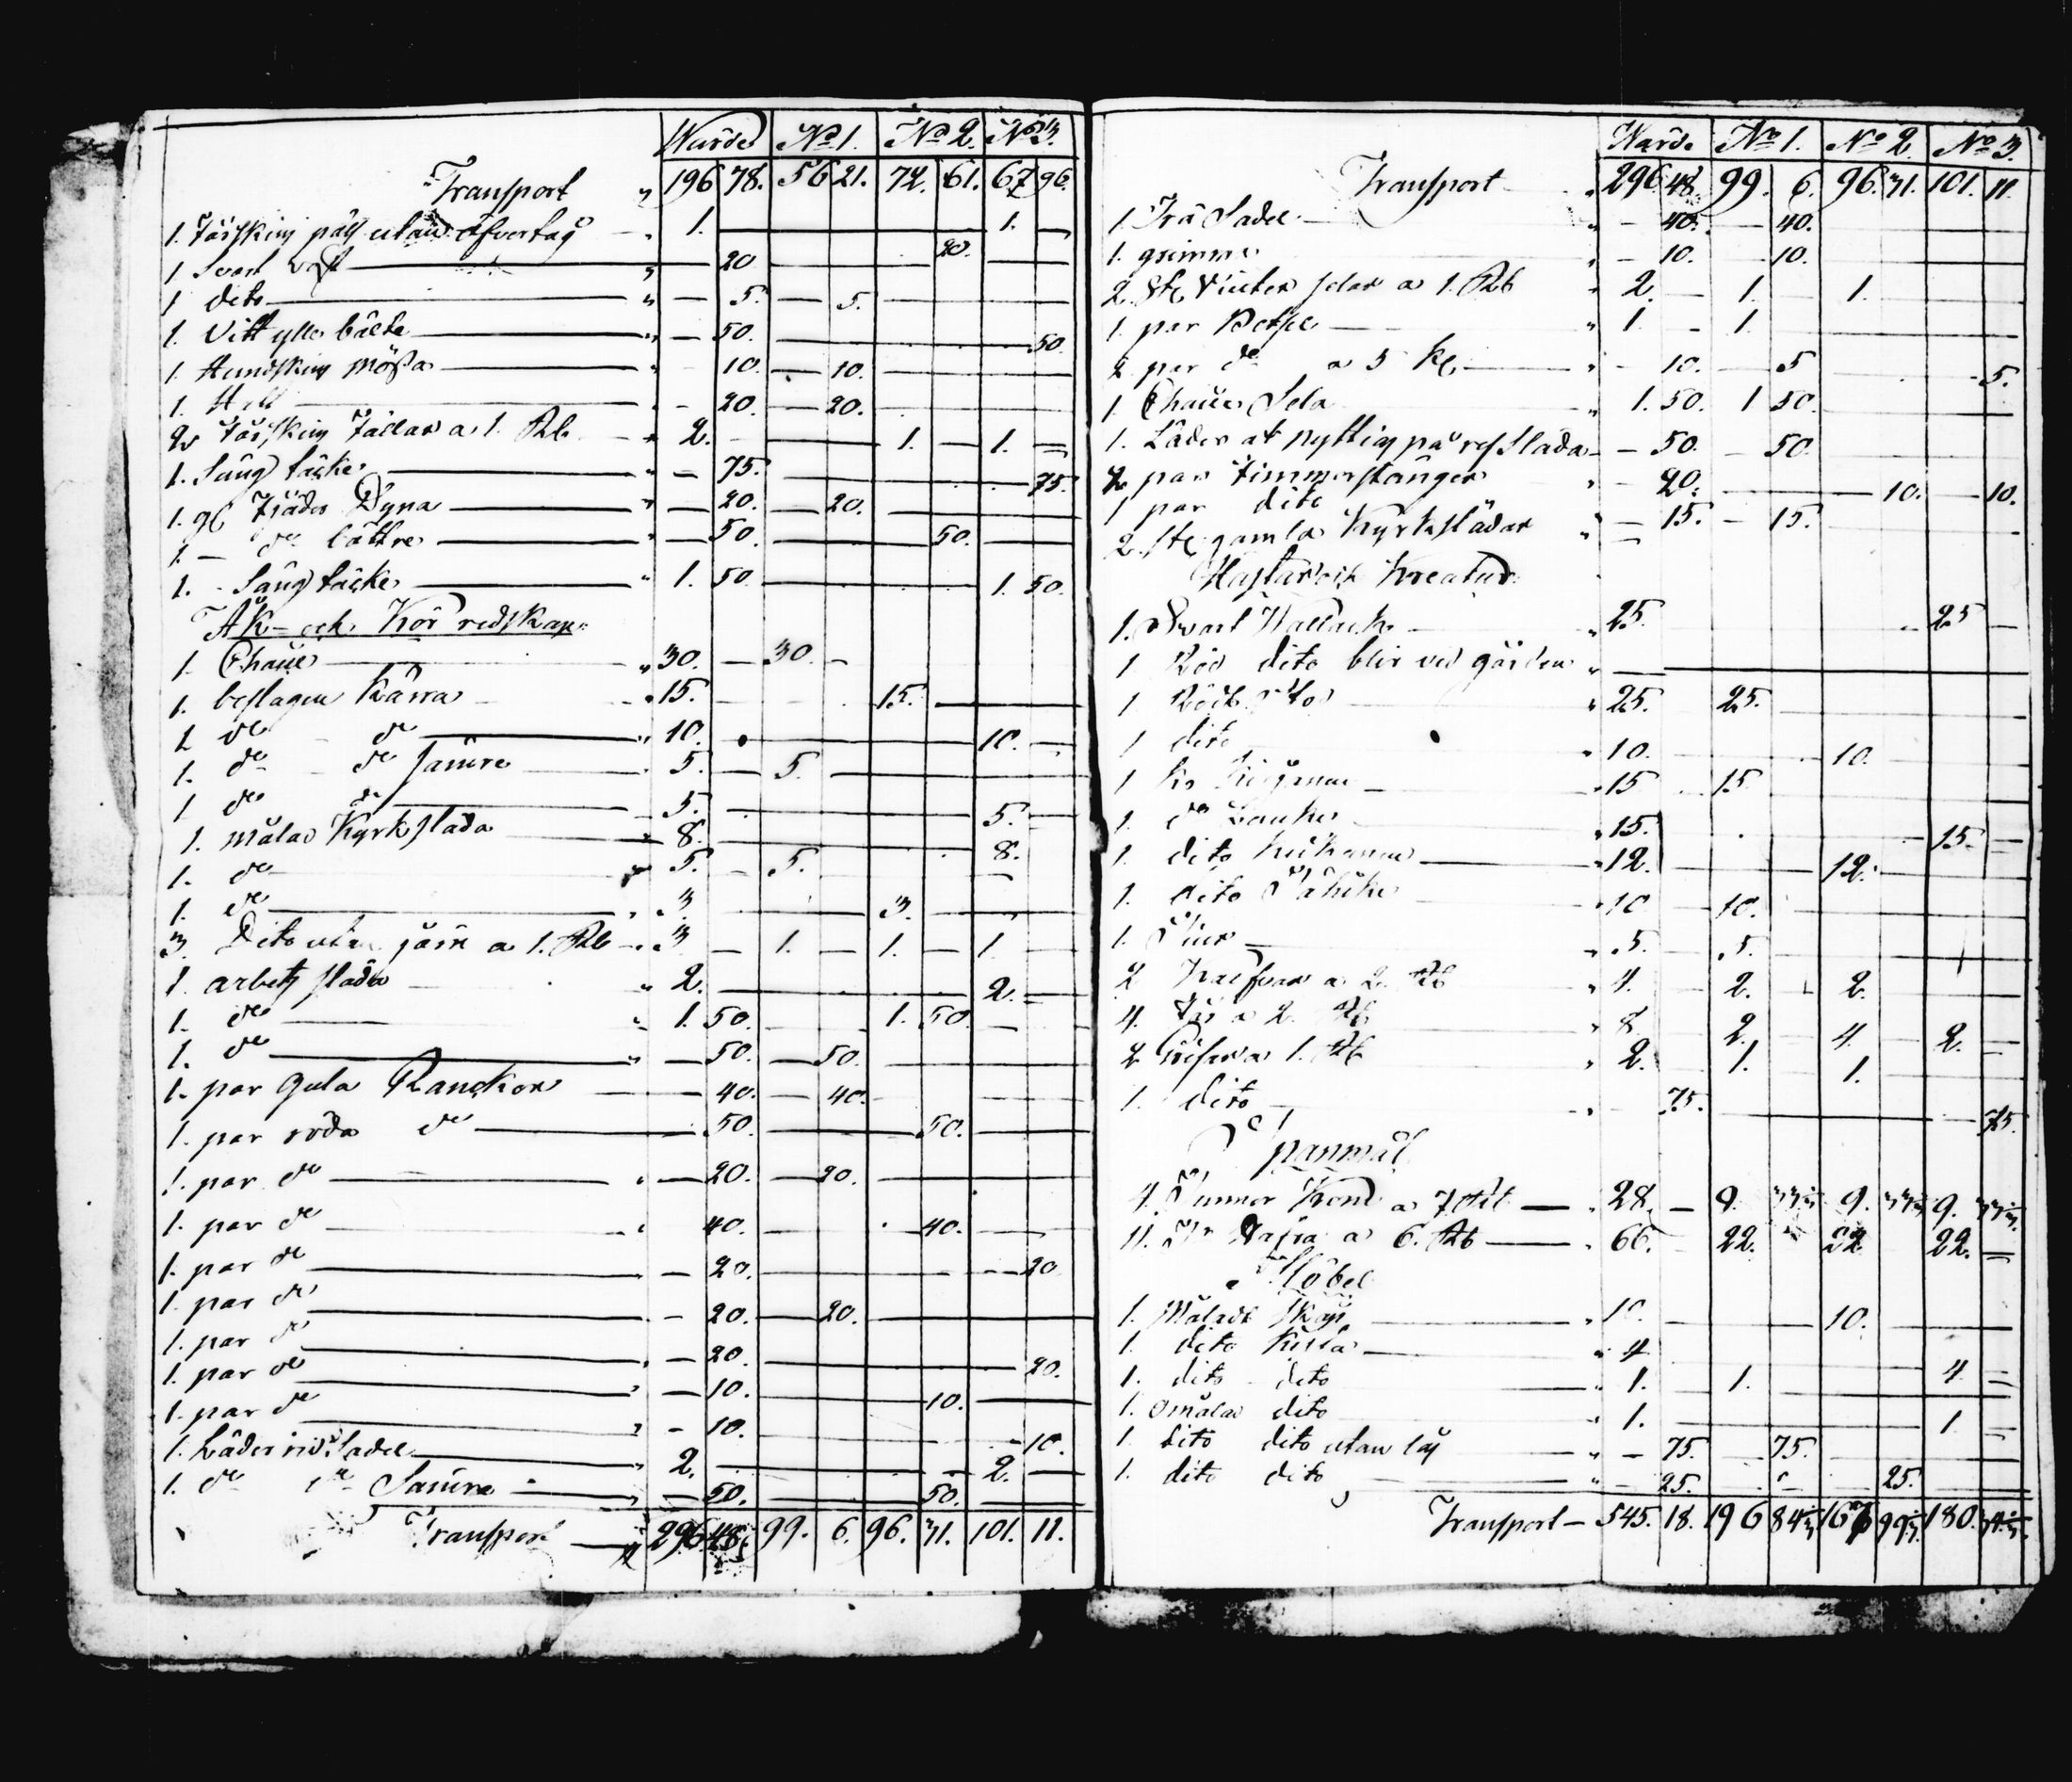 Wärde No 1. No 2. No 3.
Transport " 196 78. 56 21. 72. 61. 67 96.
1. Fårskins päls utan öfvertag 1. — 1. —
1 Svart väst " 20 — 20.
1 dito " — 5. — 5.
1. Vitt ylle bälte " — 50. — 50.
1. Hundskins mössa " 10. — 10.
1. — 20. — 20.
2 Fårskins Fällar a 1. Rb. " 2. — 1. — 1. —
1. Säng täcke " — 75. — 75.
1. gl Fjäder Dyna " — 20. — 20.
1. — do bättre " — 50. — 50.
1. Säng täcke " 1. 50. — 1. 50.
Åk- och Kör redskap
1. Chaise " 30. — 30. —
1. beslagen Kärra " 15. — 15. —
1 do do " 10. — 10. —
1. do do sämre 5. — 5. —
1 do do 5. — 5. —
1. målad Kyrksläda " 8. — 8.
1. do 5. — 5. —
1. do " 3. — 3. —
3. Dito utan järn a 1. Rb " 3 — 1. — 1. — 1. —
1. arbets släda " 2. — 2. —
1. do " 1. 50. — 1. 50. —
1. do " — 50. — 50.
1. par gula Ranckor — 40. — 40.
1. par röda do — 50. — 50.
1. par do " — 20. — 20.
1. par do " 40. — 40.
1. par do — 20. — 20
1. par do — 20. — 20.
1. par do " — 20. — 20.
1. par do " — 10. — 10.
1. par do " — 10. — 10.
1. Läder rid Sadel " 2. — 2. —
1. do do Sämre " — 50. — 50.
Transport 296 48. 99. 6. 96. 31. 101. 11.
Wärde No 1. No 2. No 3.
Transport " 296 48. 99. 6. 96. 31. 101. 11.
1. Trä Sadel " — 40. — 40.
1. grimma " — 10. — 10.
2. st. Vinter selar a 1. Rb " 2. — 1. — 1.
1. par Betsel " 1. — 1.
2 par do a 5 K. " — 10. — 5 — 5.
1 Chaise Sela " 1. 50. 1 50.
1. Läder på res Släda — 50. — 50.
2 par timmerstänger " — 20. — 10. — 10.
1 par dito
2. st. gamla Kyrkslädar " — 15. — 15.
Hästar och Kreatur
1. Svart Wallack " 25. — 25 —
1 Röd dito blir ved gården " —
1 Rödt Sto " 25. 25.
1 dito " 10. — 10.
1 Ko " 15 15.
1. do " 15. — 15. —
1. dito " 12. — 12. —
1. dito " 10 — 10.
1. Tiur " 5. — 5.
2 Kalfvar a 2. Rb " 4. — 2. — 2.
4. Får a 2. Rb " 8. 2. — 4. — 2. —
2 Grisar a 1. Rb " 2. 1. — 1.
1. dito " 75. — 75.
Spanmål
4. Tunnor Korn a 7 Rb " 28. — 9. 33⅓ 9. 33⅓ 9. 33⅓
11. Tr a 6. Rb " 66. — 22. 22 22. —
Möbel
1. Måladt Skåp " 10. — 10. —
1. dito Kista " 4. — 4. —
1. dito dito " 1. — 1.
1. Omålad dito " 1. — 1.
1. dito dito utan lås " — 75. 75.
1. dito dito " — 25. — 25.
Transport — 545. 18. 196 84⅓ 167 99⅓ 180.